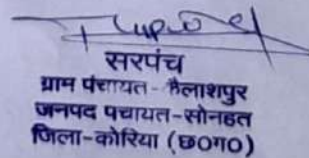 सरपंच
ग्राम पंचायत-कैलाशपुर
जनपद पचायत-सोनहत
जिला-कोरिया (छ०ग०)